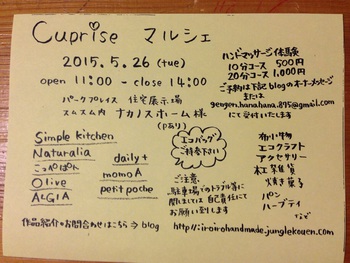 Cuprise マルシェ
2015.5.26 (tue)
open 11:00 - close 14:00
パークプレイス 住宅展示場
スムスム内 ナカノスホーム様
(Pあり)
ハンドマッサージ体験
10分コース 500円
20分コース 1,000円
ご予約は下記blogのオーナーメッセージ
または
gengen.hanahana.895@gmail.com
にて受付いたします
Simple kitchen
Naturalia
こっぺぱん
Olive
ALGIA
daily+
momoA
petit poche
エコバッグ
ご持参下さい
ご注意
駐車場でのトラブル等に
関しましては自己責任にて
お願い致します
布小物
エコクラフト
アクセサリー
木工雑貨
焼き菓子
パン
ハーブティ
など
作品紹介やお問合わせはこちら⇒blog
http://iroirohandmade.junglekouen.com